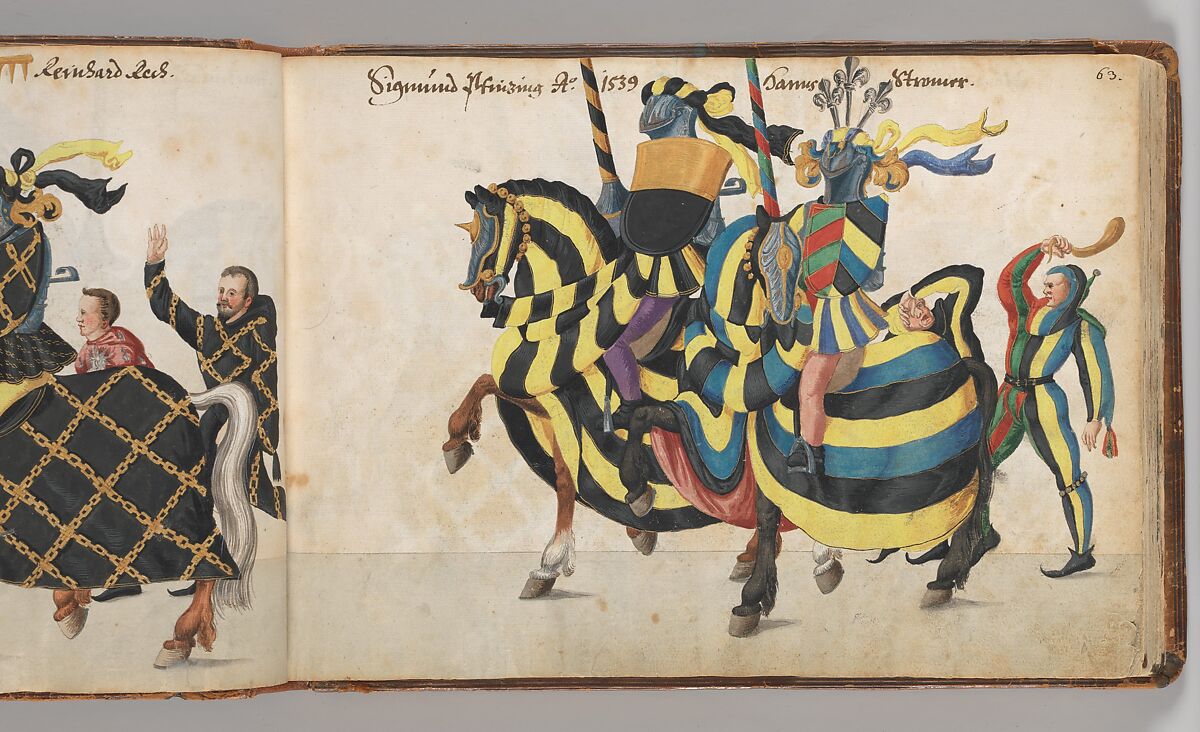 Reinhard Rech.
Sigmund Pfinzing Aº. 1539 Hanns Stromer. 63.